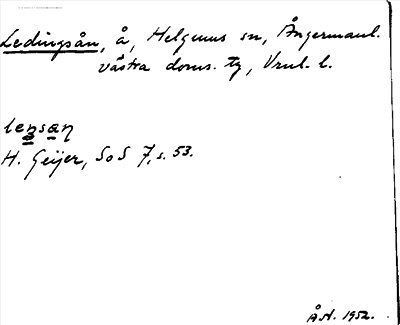 Ledingsån, å, Helgums sn, Ångermanl.
västra doms. tg, Vrnl. l.
lensan
H. Geijer, SoS 7, s. 53.
Å.N. 1952.